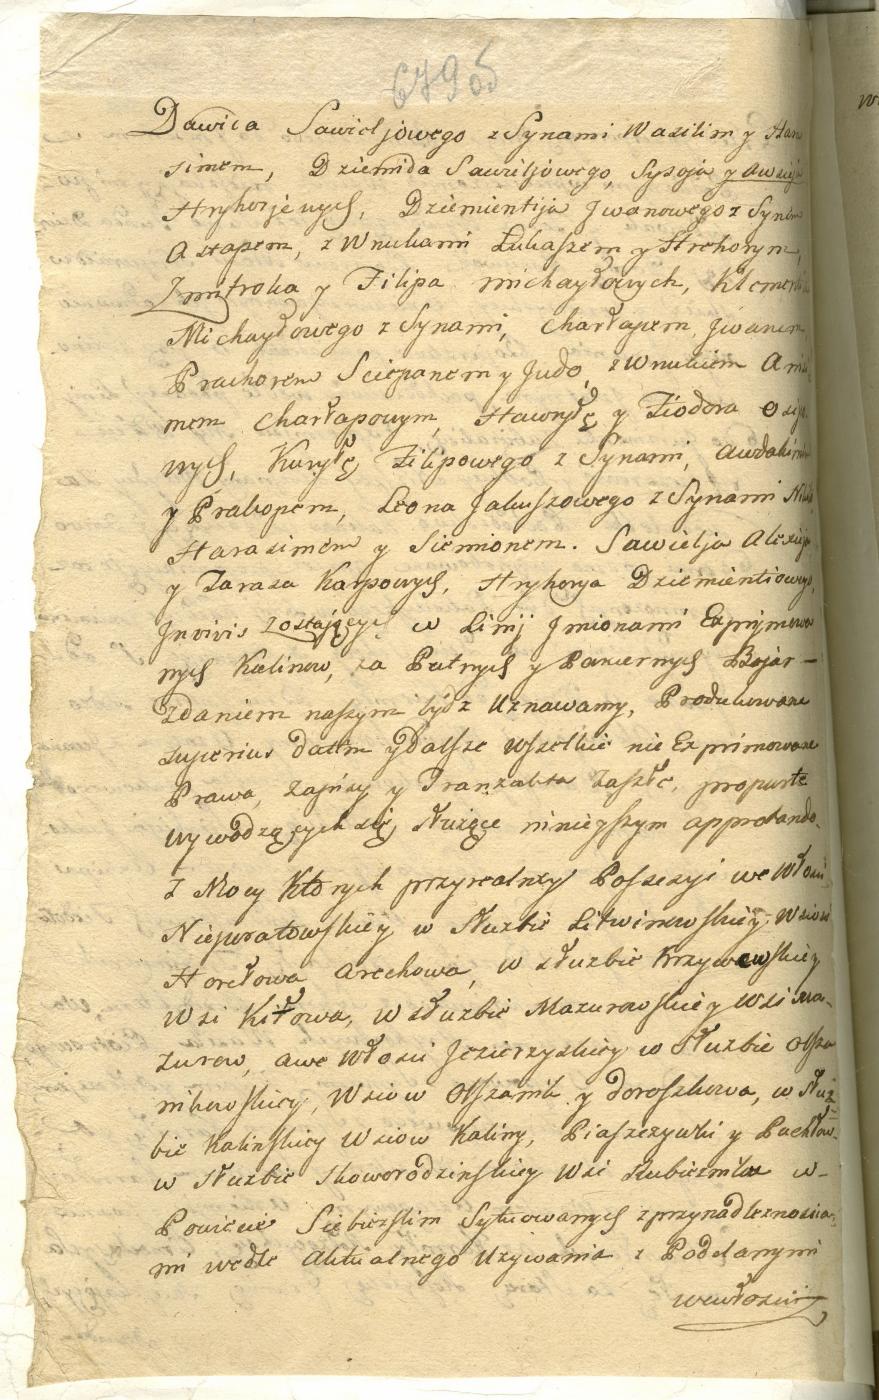 679 об
Dawida Sawieljowego z Synami Wasilim y Har
simem, Dziemida Sawieljowego, Sysoja y Awsieja
Hryhorjewych, Dziemientija Jwanowego z Synem
Astapem, z Wnukami Łukaszem y Hrehorym,
Zmitroka y Filipa Michayłowych, Klementa
Michayłowego z Synami, Charłapem, Jwanem,
Prachorem Sciepanem y Judo, z Wnukiem
mem Charłapowym, Hawryłę y Fiodora Osip
wych, Kuryłę Filipowego z Synami, Awdakimem
y Prakopem, Leona Jakuszowego z Synami
Harasimem y Siemionem. Sawielja Alexieja
y Tarasa Karpowych, Hryhorja Dziemientiowego,
Jnvivis zostających w Linij Jmionami Exprymowa
nych Kalinow, za Putnych y Pancernych Bojar
Zdaniem naszym bydź Uznawamy, Produkowane
superius datem y dalsze wszelkie nie Exprimowane
Prawa, Zapisy y Tranzakta Zaszłe, pro parte
wywodzących się Służące ninieyszym approbando.
Z Mocy Których przy realney Possesyi we Włosci
Nieporatowskiey w Służbie Litwinowskiey, Wsiow
Horełowa Arechowa, w służbie Krzywowskiey
Wsi Kiłowa, w służbie Mazurowskiey Wsi Ma-
zurow, a we Włosci Jezierzyskiey w Służbie Olsza
nikowskiey, Wsiow Olszanik y Doroszkowa, w Służ
bie Kalinskiey Wsiow Kaliny, Piaszczywki y Pachłow
w Służbie Skoworodzinskiey Wsi w-
Powiecie Siebieżskim Sytuowanych z przynadleznoscia-
mi wedle Aktualnego Używania z Poddanymi
wewłosci